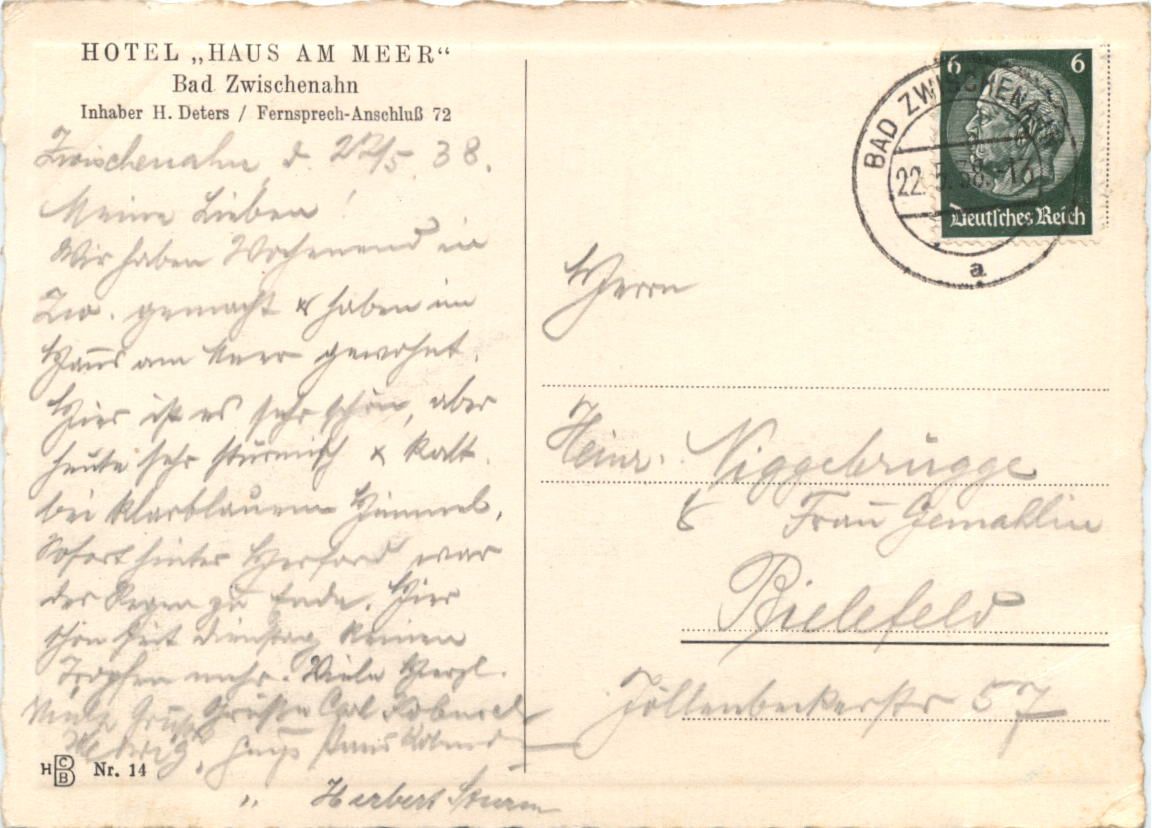 HOTEL „HAUS AM MEER“
Bad Zwischenahn
Inhaber H. Deters / Fernsprech-Anschluß 72
Zwischenahn d. 22/5. 38.
Meine Lieben!
Wir haben Wochenend in
Zw. gemacht & haben im
Haus am Meer gewohnt.
Hier ist es sehr schön, aber
heute sehr stürmisch & kalt.
bei klarblauem Himmel.
Sofort hinter Herford war
der Regen zu Ende. Hier
schon seit Dienstag keinen
Tropfen mehr. Viele Herzl.
Grüße
Hedwig
„ Herbert Sturm
HCB Nr. 14
BAD ZWISCHENAHN
22.5.38.-13
a
6 6
Deutsches Reich
Herrn
Heinr. Niggebrügge
& Frau Gemahlin
Bielefeld
Jöllenbeckerstr 57